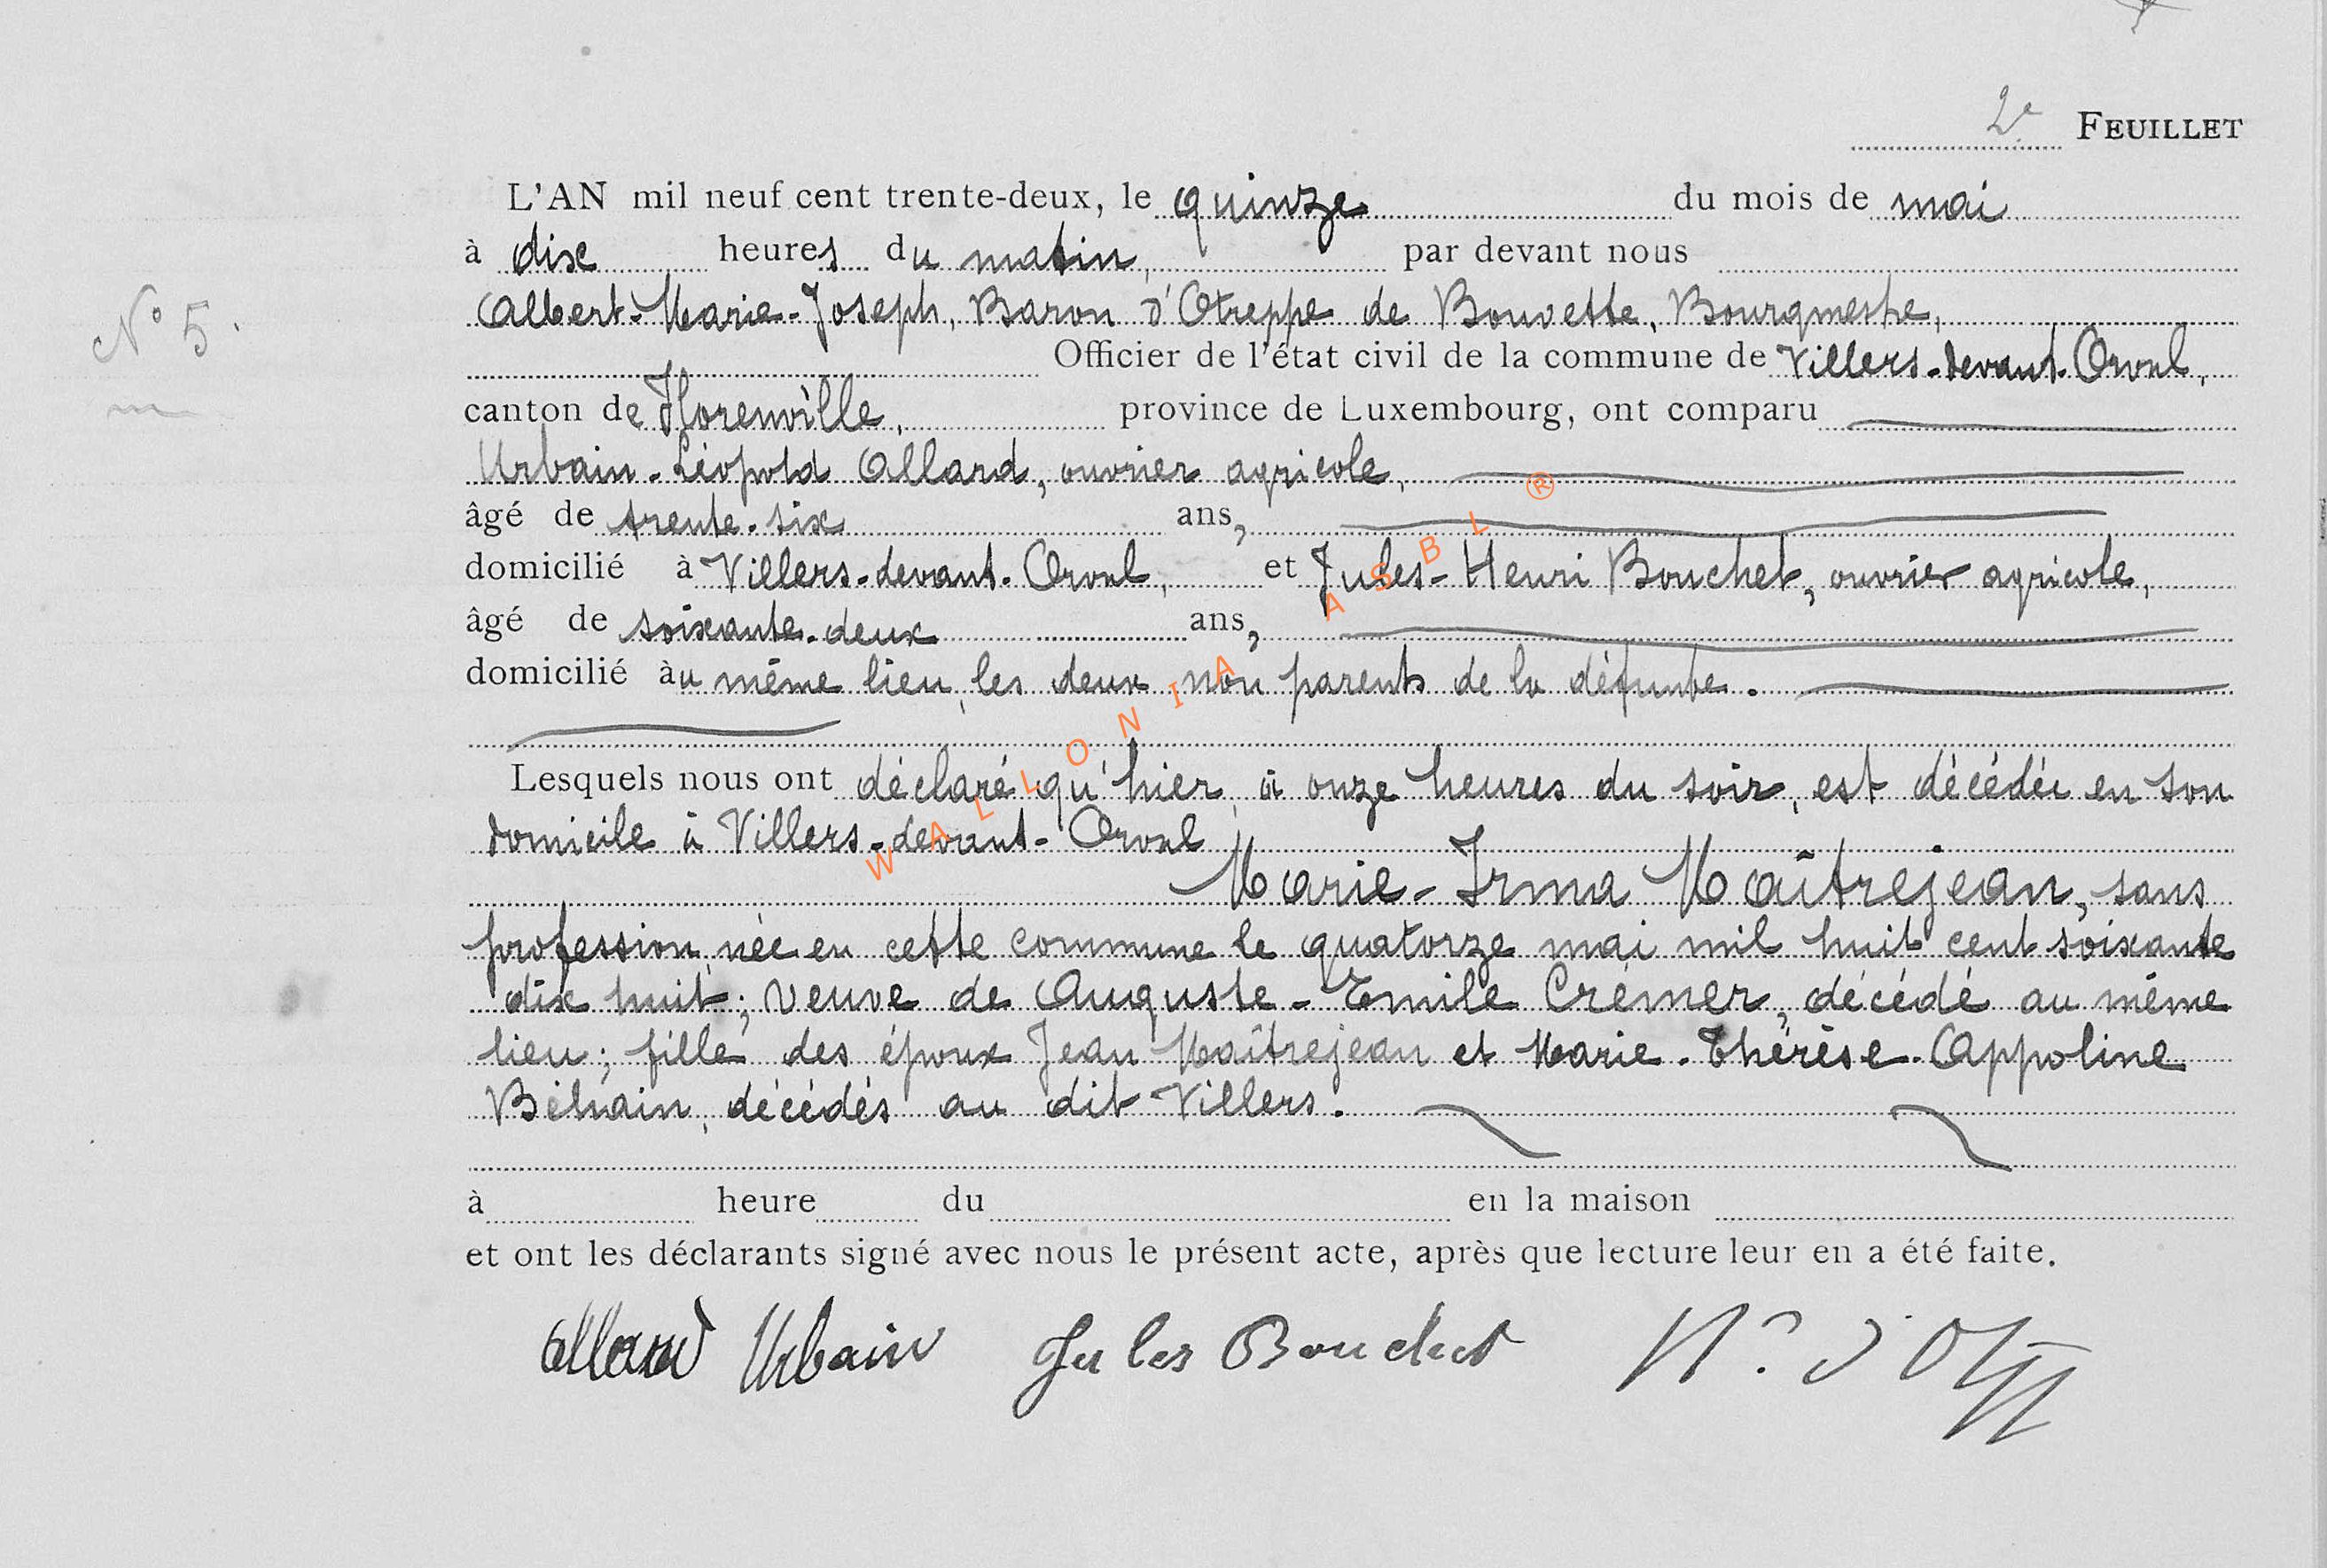 2e FEUILLET
L'AN mil neuf cent trente-deux, le quinze du mois de mai
à dix heures du matin, par devant nous
Albert-Marie-Joseph, Baron d'Otreppe de Bouvette, Bourgmestre,
N° 5.
Officier de l'état civil de la commune de Villers-devant-Orval,
canton de Florenville, province de Luxembourg, ont comparu
Urbain-Léopold Allard, ouvrier agricole,
âgé de trente-six ans,
domicilié à Villers-devant-Orval, et Jules-Henri Bouchet, ouvrier agricole,
âgé de soixante-deux ans,
domicilié àu même lieu, les deux non parents de la défunte.
Lesquels nous ont déclaré qu'hier, à onze heures du soir, est décédée en son
domicile à Villers-devant-Orval
Marie-Irma Maîtrejean, sans
profession, née en cette commune le quatorze mai mil huit cent soixante
dix huit; veuve de Auguste-Emile Crémer, décédé au même
lieu; fille des époux Jean Maîtrejean et Marie-Thérèse-Appoline
Béhain, décédés au dit Villers.
à heure du en la maison
et ont les déclarants signé avec nous le présent acte, après que lecture leur en a été faite.
Allard Urbain Jules Bouchet
WALLONIA ASBL ®